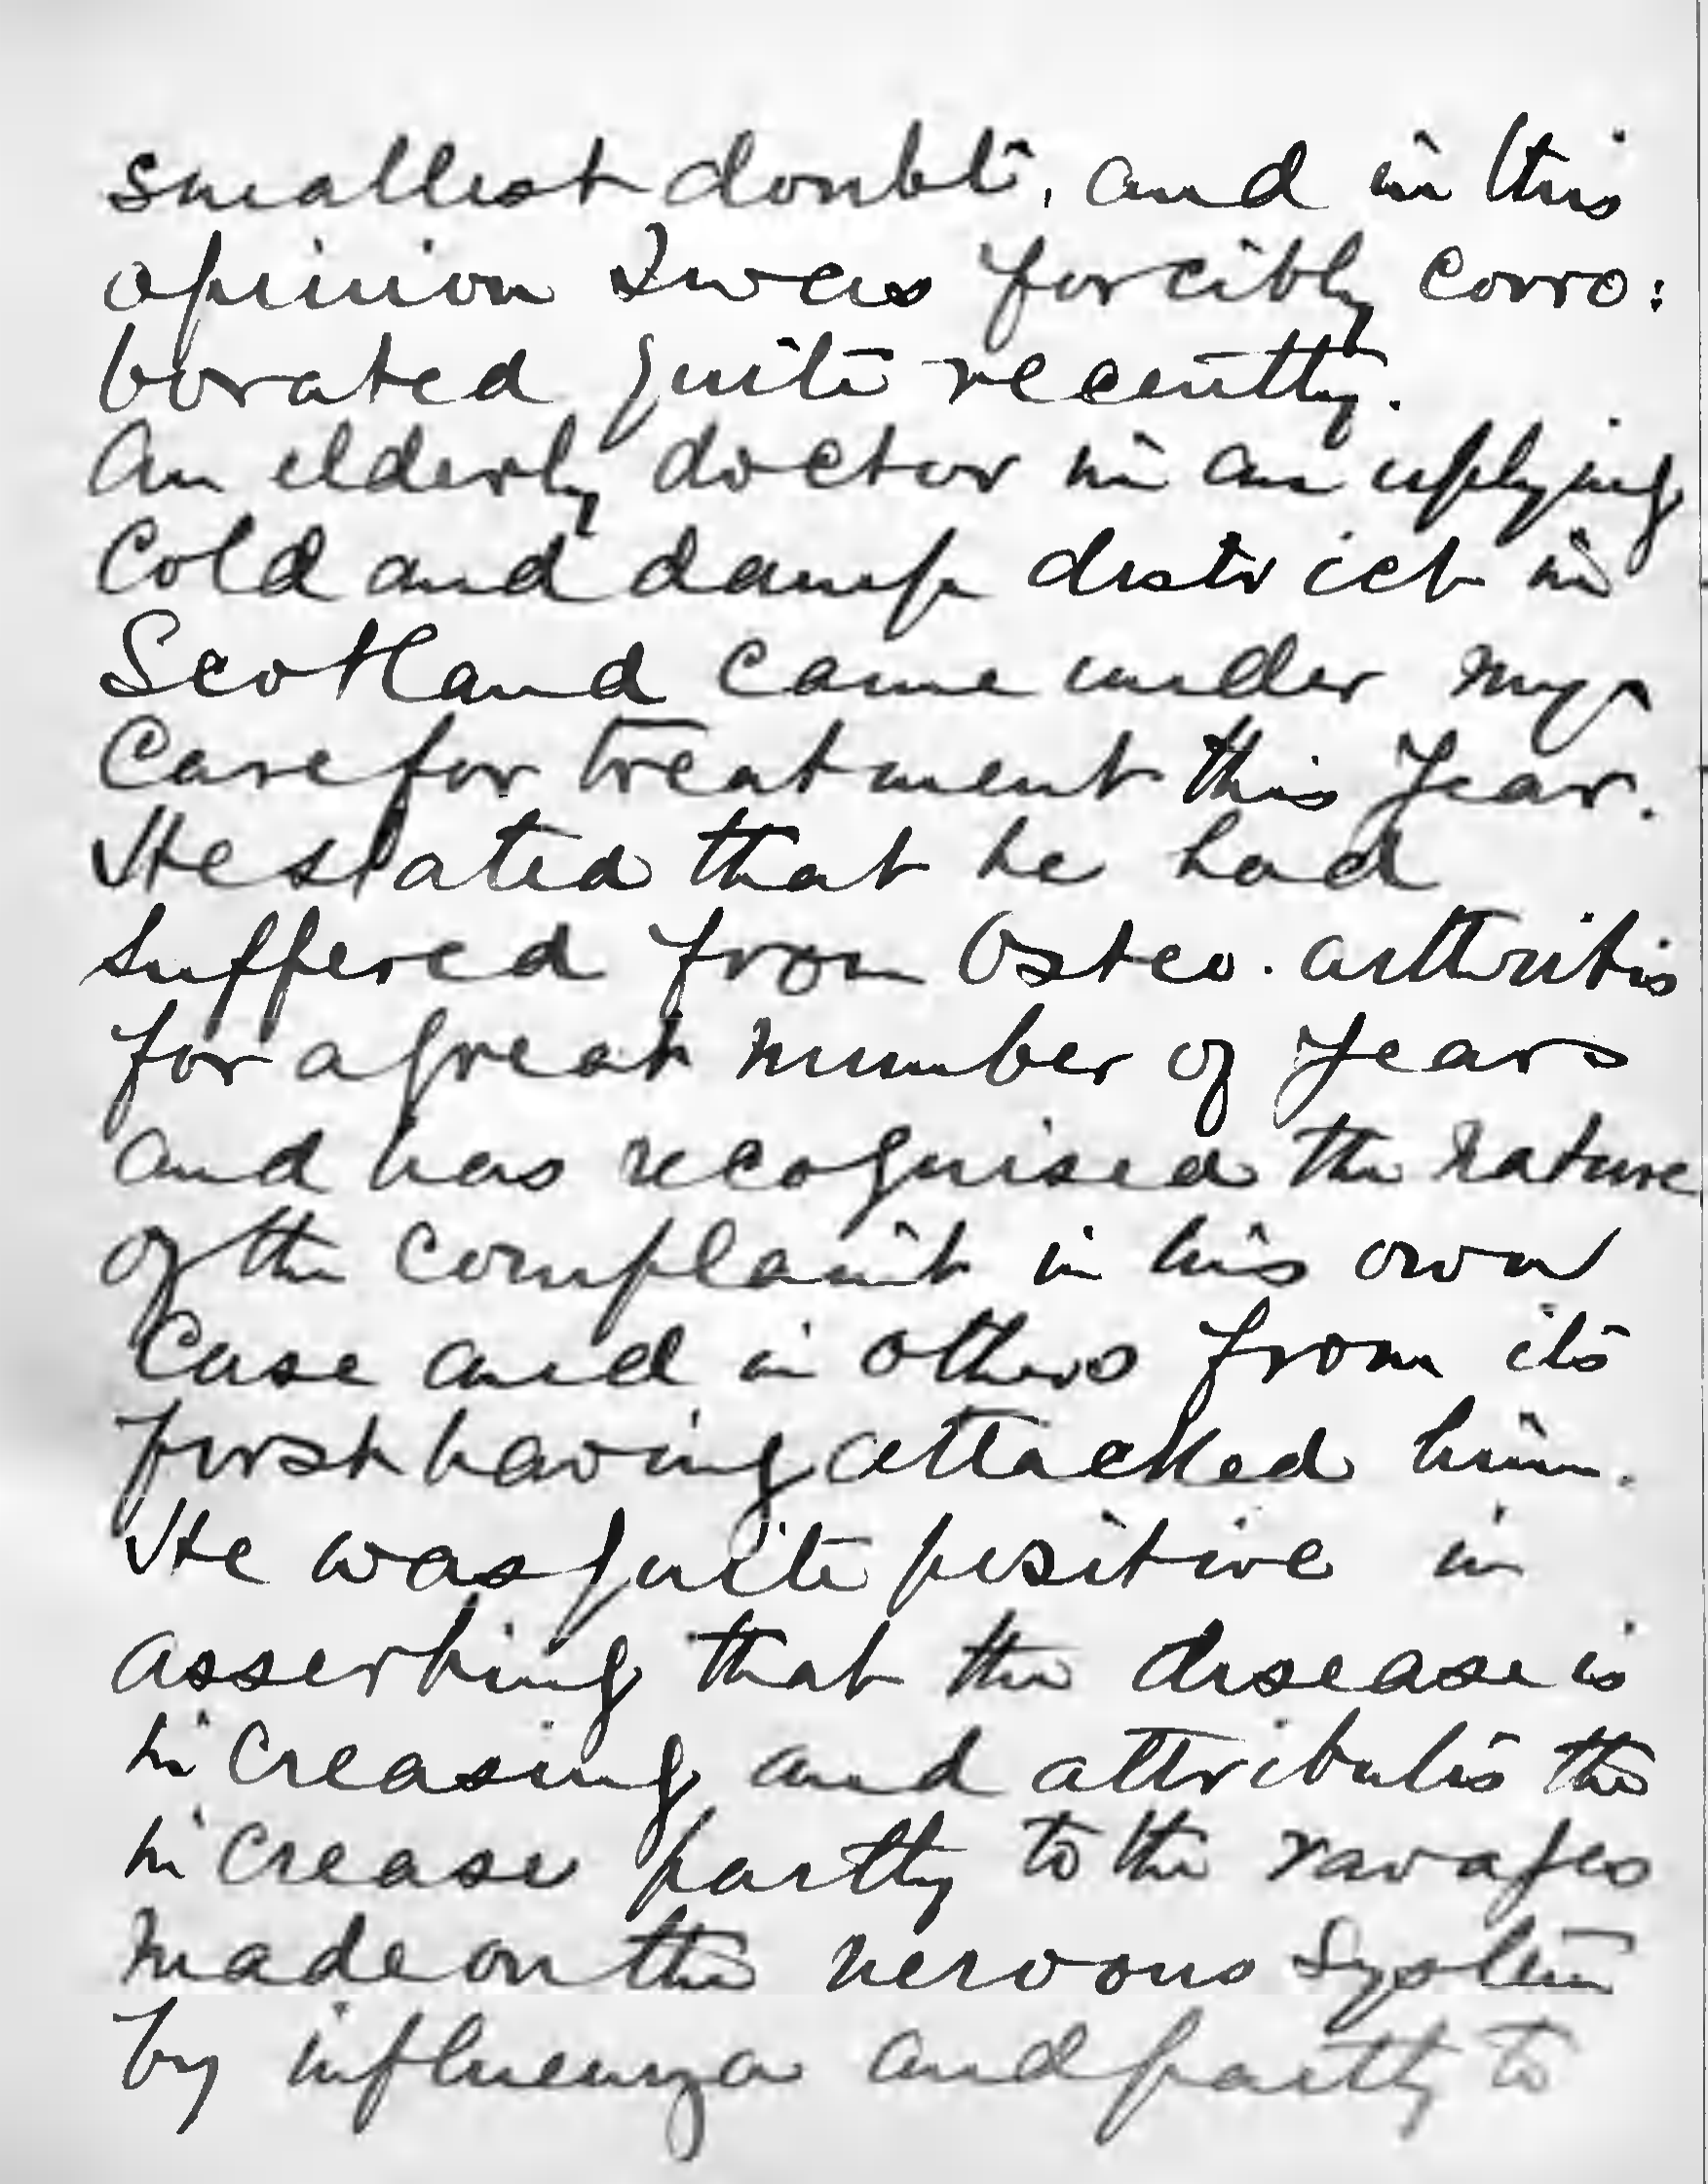 smallest doubt, and in this
opinion I was forcibly corro:
borated quite recently.
An elderly doctor in an uplying
cold and damp district in
Scotland came under my
care for treatment this year.
He stated that he had
suffered from Osteo-arthritis
for a great number of years
and has recognised the nature
of the complaint in his own
case and in others from its
first having attacked him.
He was quite positive in
asserting that the disease is
increasing and attributes the
increase partly to the ravages
made on the nervous system
by influenza and partly to